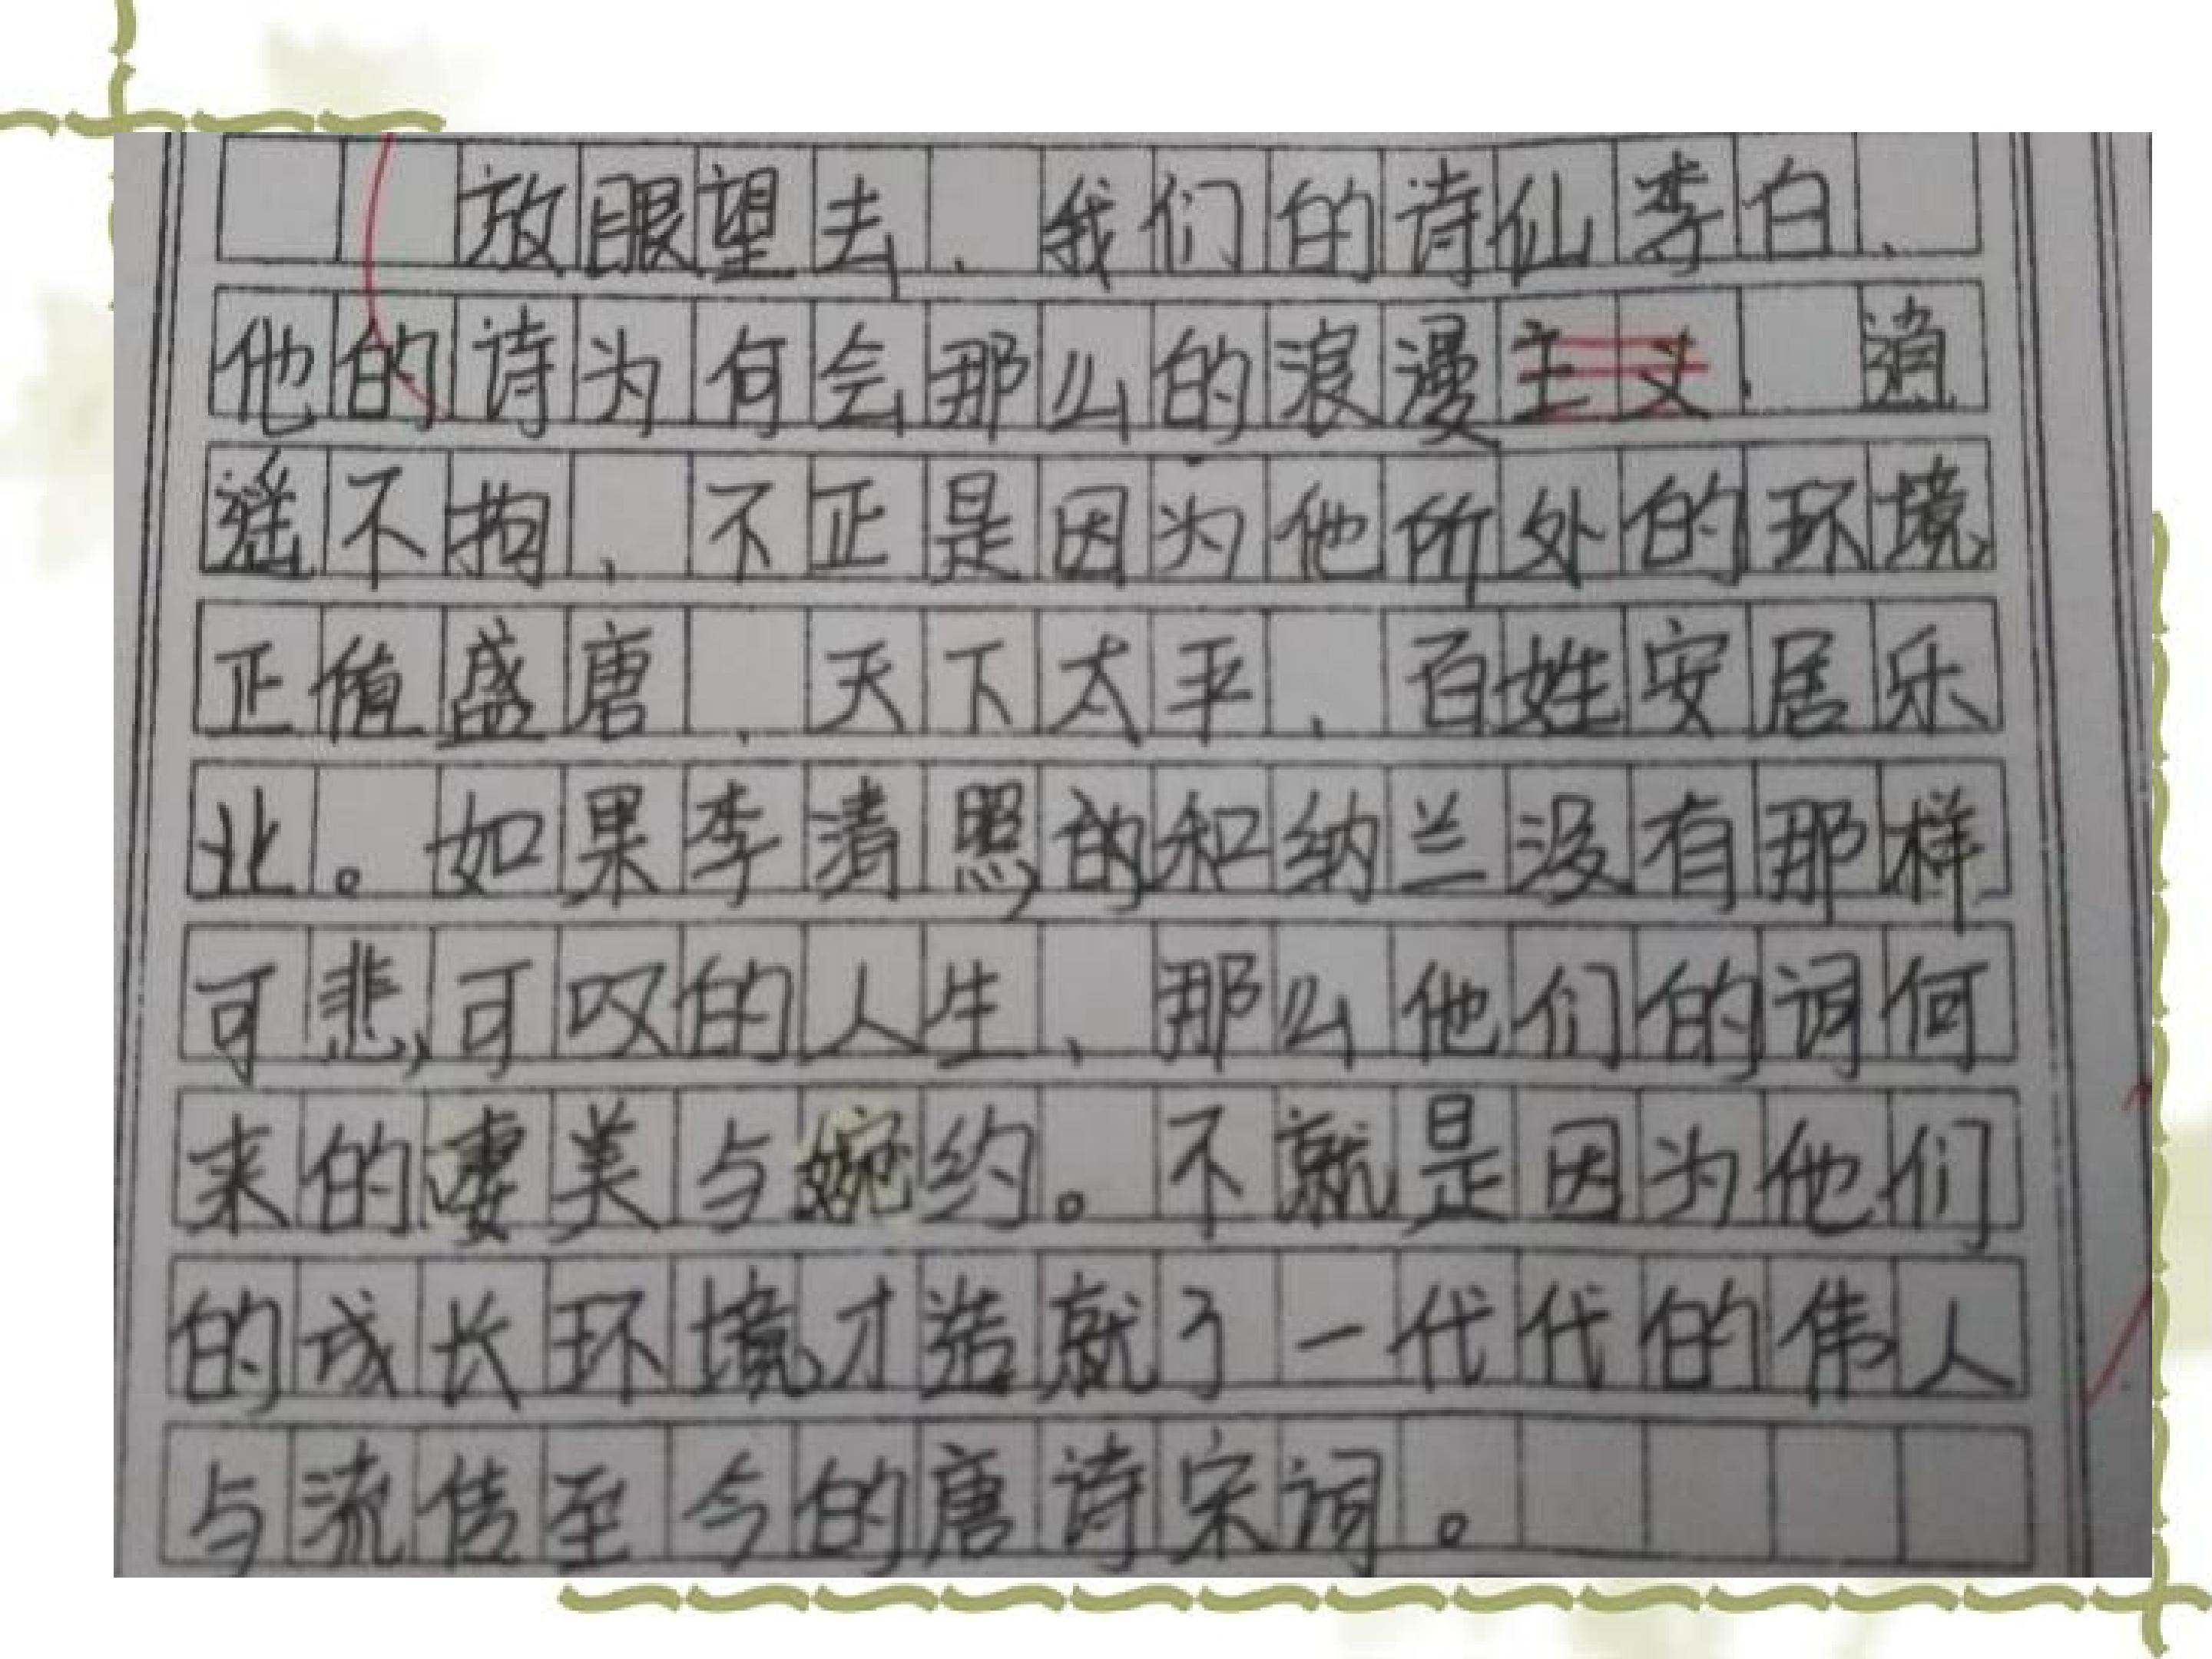 放眼望去，我们的诗仙李白，
他的诗为何会那么的浪漫主义，逍
遥不拘，不正是因为他所处的环境
正值盛唐，天下太平，百姓安居乐
业。如果李清照的和纳兰没有那样
可悲，可叹的人生，那么他们的词何
来的凄美与婉约。不就是因为他们
的成长环境，才造就了一代代的伟人
与流传至今的唐诗宋词。